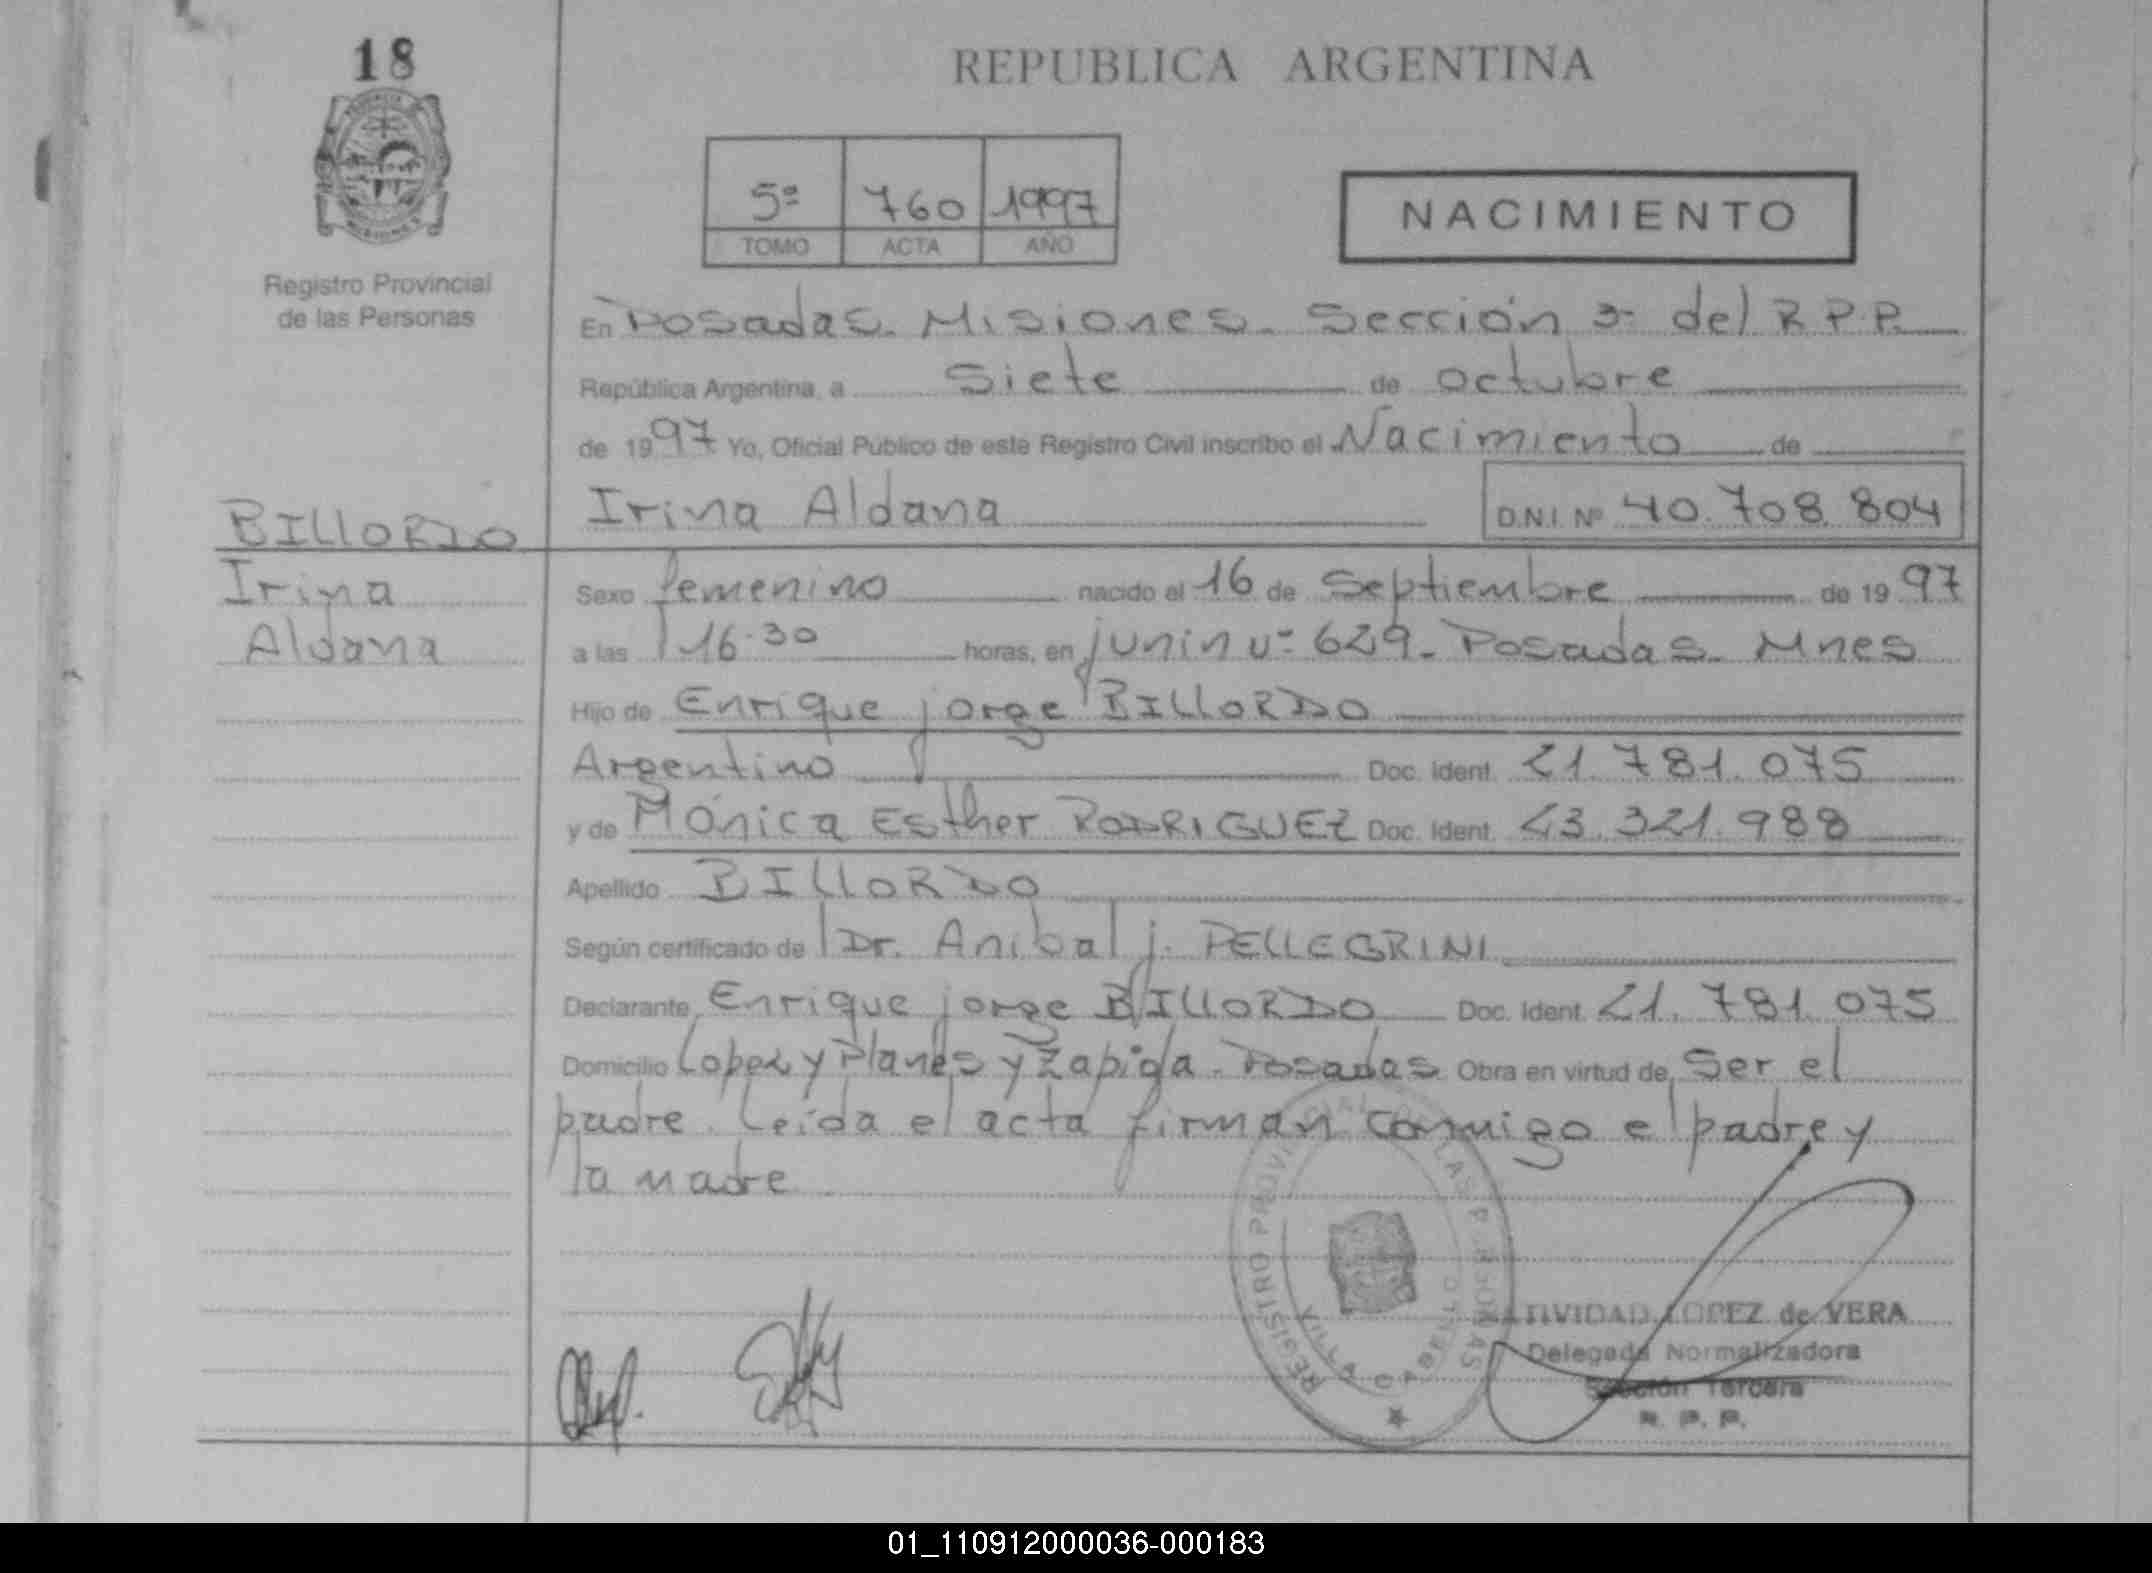 18
REPUBLICA ARGENTINA
5ª 760 1997
TOMO ACTA AÑO
NACIMIENTO
Registro Provincial
de las Personas
En Posadas. Misiones. Sección 3ª del R.P.P.
República Argentina, a Siete de octubre
de 1997 Yo, Oficial Público de este Registro Civil inscribo el Nacimiento de
Irina Aldana D.N.I. Nº 40.708.804
BILLORDO
Irina
Aldana
Sexo femenino nacido el 16 de Septiembre de 1997
a las 16.30 horas, en junin nº 629. Posadas. Mnes
Hijo de Enrique jorge BILLORDO
Argentino Doc. Ident. 21.781.075
y de Mónica Esther RODRIGUEZ Doc. Ident. 23.321.988
Apellido BILLORDO
Según certificado de Dr. Anibal j. PELLEGRINI
Declarante Enrique jorge BILLORDO Doc. Ident. 21.781.075
Domicilio Lopez y Planes y Zapiola. Posadas Obra en virtud de Ser el
padre. Leída el acta firman conmigo el padre y
la madre
REGISTRO PROVINCIAL DE LAS PERSONAS
VILLA CABELLO
LOPEZ de VERA
Delegada Normalizadora
Sección Tercera
R. P. P.
01_110912000036-000183